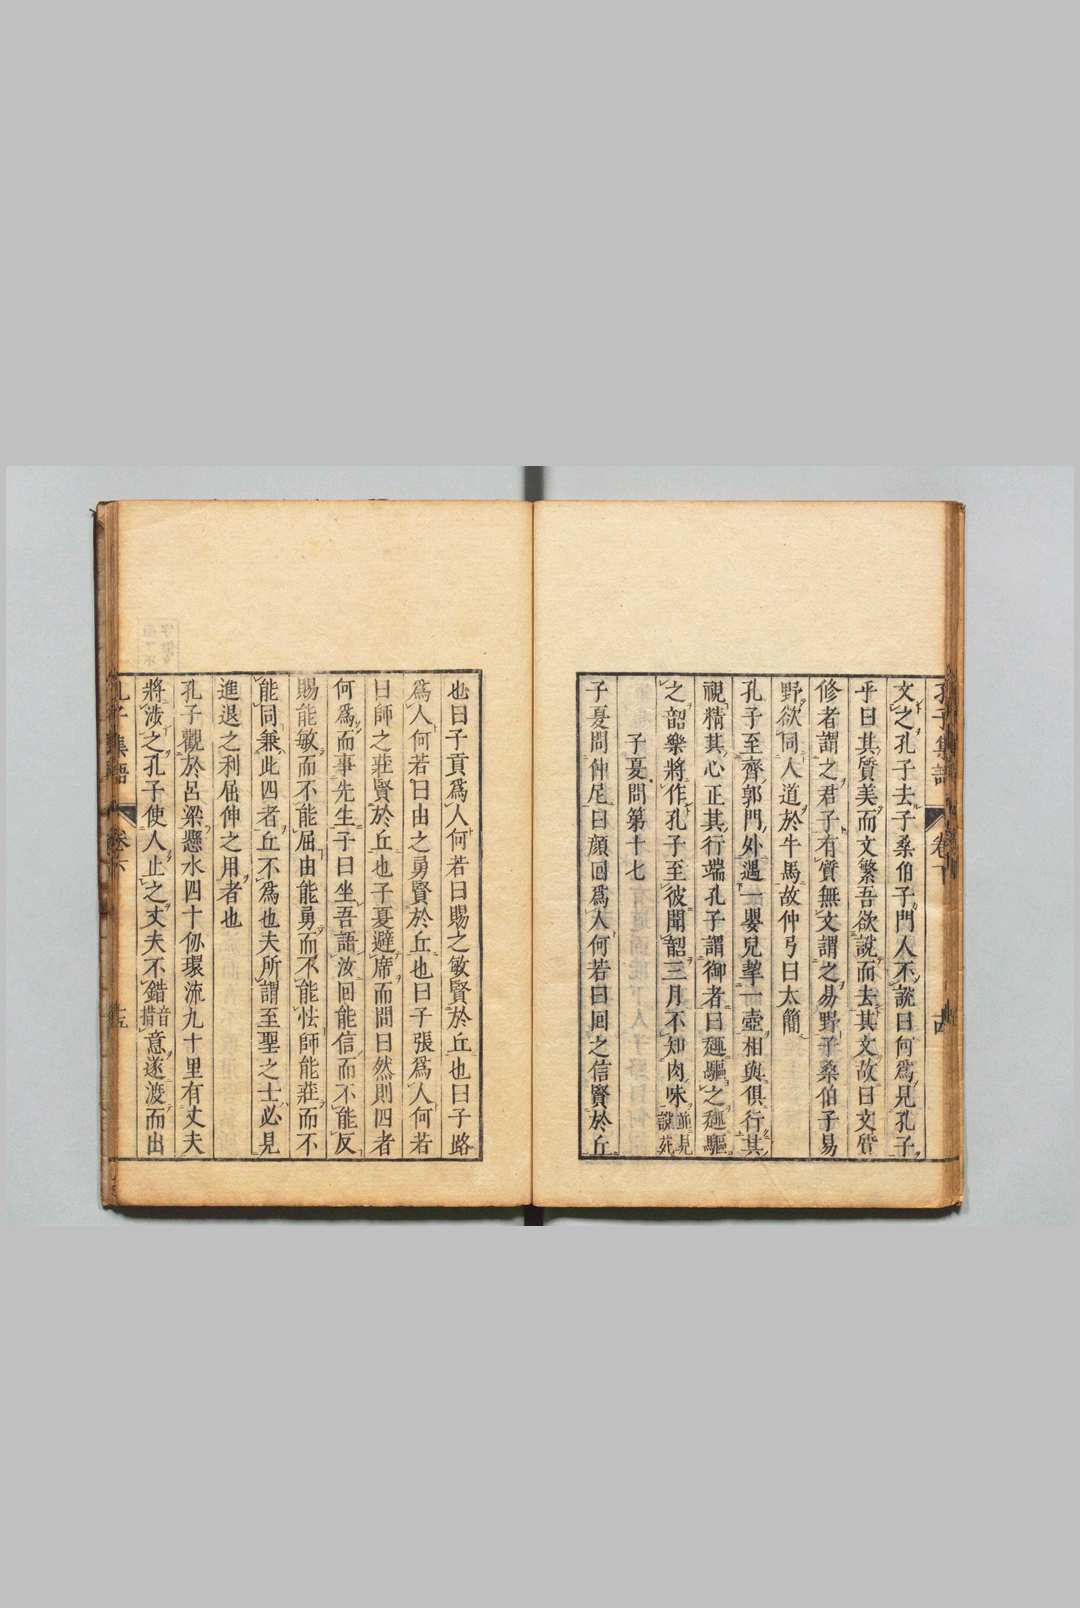 文之孔子去子桑伯子門人不說曰何爲見孔子
乎曰其質美而文繁吾欲說而去其文故曰文質
修者謂之君子有質無文謂之易野子桑伯子易
野欲同人道於牛馬故仲弓曰太簡
孔子至齊郭門外遇一嬰兒挈一壺相與俱行其
視精其心正其行端孔子謂御者曰趣驅之趣驅
之韶樂將作孔子至彼聞韶三月不知肉味並見說苑
子夏問第十七
子夏問仲尼曰顔回爲人何若曰回之信賢於丘
也曰子貢爲人何若曰賜之敏賢於丘也曰子路
爲人何若曰由之勇賢於丘也曰子張爲人何若
曰師之莊賢於丘也子夏避席而問曰然則四者
何爲而事先生子曰坐吾語汝回能信而不能反
賜能敏而不能屈由能勇而不能怯師能莊而不
能同兼此四者丘不爲也夫所謂至聖之士必見
進退之利屈伸之用者也
孔子觀於呂梁懸水四十仞環流九十里有丈夫
將涉之孔子使人止之丈夫不錯音措意遂渡而出
孔子集語
卷六